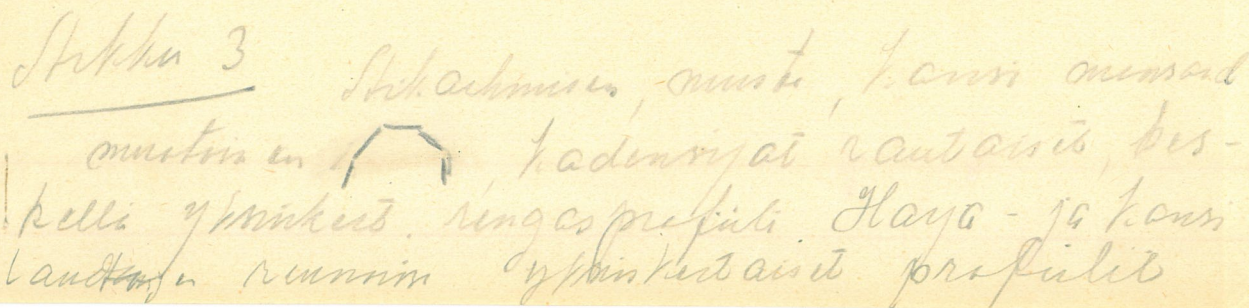 Arkku 3 Arkadimisen, musta, kansi mansard
muotoinen, kädensijat rautaiset, kes-
kellä yksinkert. rengasprofiili. Harja- ja kansi
lautojen reunoin yksinkertaiset profiilit